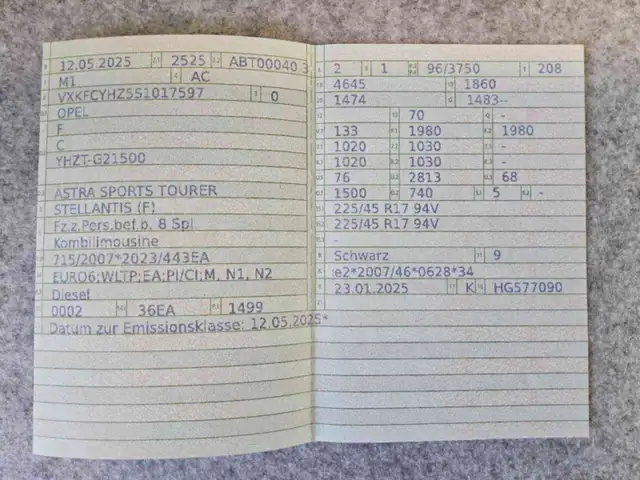 12.05.2025 2525 ABT00040 3
M1 AC
VXKFCYHZ5S1017597 0
OPEL
F
C
YHZT-G21500
ASTRA SPORTS TOURER
STELLANTIS (F)
Fz.z.Pers.bef.b. 8 Spl.
Kombilimousine
715/2007*2023/443EA
EURO6;WLTP;EA;PI/CI;M, N1, N2
Diesel
0002 36EA 1499
Datum zur Emissionsklasse: 12.05.2025*
2 1 96/3750 208
4645 1860
1474 1483--
70 -
133 1980 1980
1020 1030 -
1020 1030 -
76 2813 68
1500 740 5 -
225/45 R17 94V
225/45 R17 94V
-
Schwarz 9
e2*2007/46*0628*34
23.01.2025 K HG577090